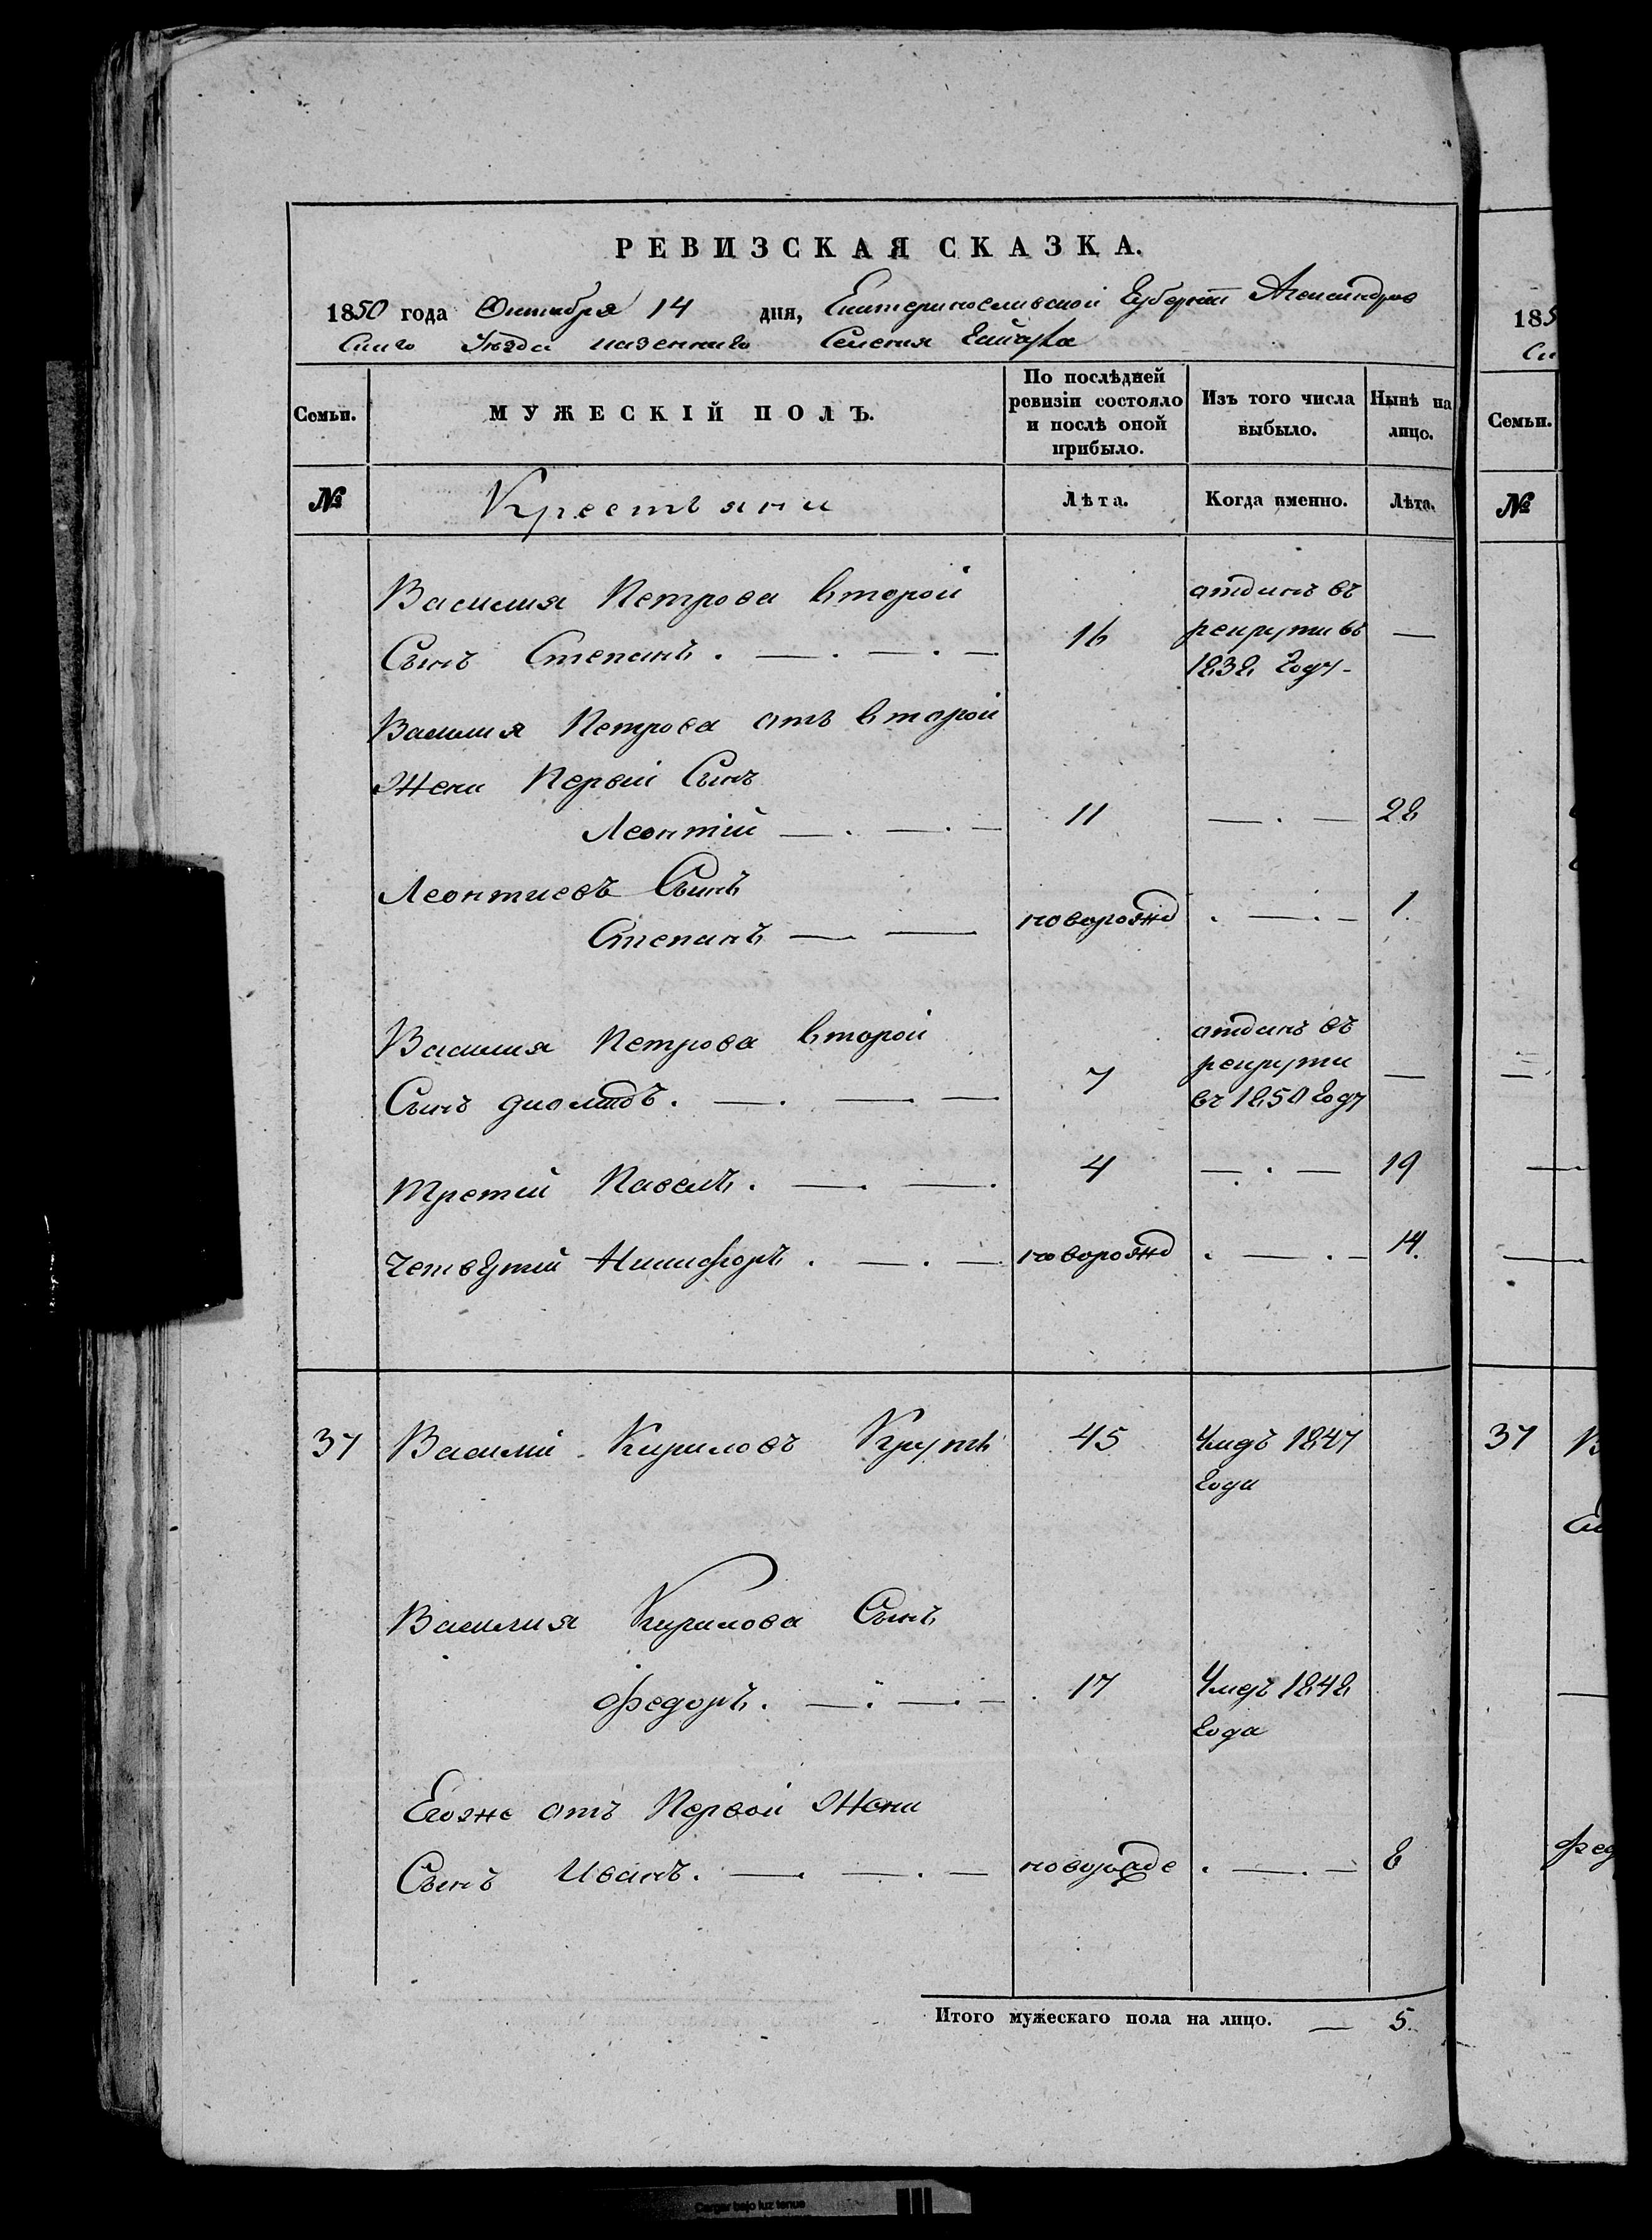 РЕВИЗСКАЯ СКАЗКА.
1850 года Октября 14 дня, Екатеринославской Губернiи Александров
скаго Уѣзда казеннаго Селения
Семьи. МУЖЕСКIЙ ПОЛЪ. По послѣдней ревизiи состояло и послѣ оной прибыло. Изъ того числа выбыло. Нынѣ на лицо.
№ Крестьяни Лѣта. Когда именно. Лѣта.
Василия Петрова второй отданъ въ
Сынъ Степанъ. 16 рекруты въ —
1838 году
Василия Петрова отъ второй
Жени Первый Сынъ
Леонтий — 11 — 28
Леонтиевъ Сынъ
Степанъ — новорожд — 1.
Василия Петрова второй отданъ въ
7 рекрути —
Сынъ Диомидъ. въ 1850 году
Третий Павелъ. 4 — 19
Четвертий Никифоръ. новорожд — 14.
37 Василий Кириловъ Крутъ 45 Умдъ 1847
года
Василия Кирилова Сынъ
Федоръ. 17 Умдъ 1848
года
Егоже отъ Первой Жени
Сынъ Иванъ. — 8
Итого мужескаго пола на лицо. — 5.
185
Семьи.
№
37
Фед
Cargar bajo luz tenue